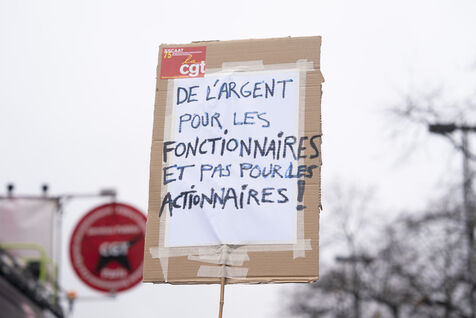 la
cgt
DE L'ARGENT
POUR LES
FONCTIONNAIRES
ET PAS POUR LES
ACTIONNAIRES !
CGT